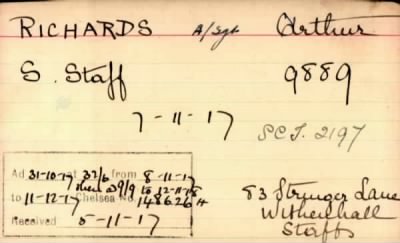 RICHARDS A/Sgt Arthur
S. Staff 9889
7-11-17
SCJ. 2197
Ad 31-10-17 at 32/6 from 8-11-17
then @ 9/9 to 12-11-18
to 11-12-17 Chelsea No. 148626 H
Received 5-11-17
83 Stringer Lane
Willenhall
Staffs